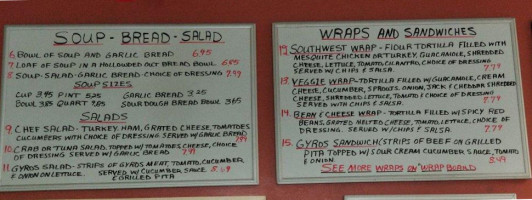 SOUP - BREAD - SALAD
6 BOWL OF SOUP AND GARLIC BREAD 6.95
7 LOAF OF SOUP IN A HOLLOWED OUT BREAD BOWL 6.85
8 SOUP-SALAD-GARLIC BREAD-CHOICE OF DRESSING 7.99
SOUP SIZES
CUP 3.95 PINT 5.25 GARLIC BREAD 3.25
BOWL 3.85 QUART 7.85 SOUR DOUGH BREAD BOWL 3.65
SALADS
9 CHEF SALAD - TURKEY, HAM, GRATED CHEESE, TOMATOES
CUCUMBERS WITH CHOICE OF DRESSING SERVED W/ GARLIC BREAD
10 CRAB OR TUNA SALAD, TOPPED W/ TOMATOES, CHEESE, CHOICE
OF DRESSING. SERVED W/ GARLIC BREAD 7.99
11 GYROS SALAD - STRIPS OF GYROS MEAT, TOMATO, CUCUMBER
& ONION ON LETTUCE. SERVED W/ CUCUMBER SAUCE 8.49
& GRILLED PITA
WRAPS AND SANDWICHES
12 SOUTHWEST WRAP - FLOUR TORTILLA FILLED WITH
MESQUITE CHICKEN OR TURKEY, GUACAMOLE, SHREDDED
CHEESE, LETTUCE, TOMATO, CILANTRO, CHOICE OF DRESSING
SERVED W/ CHIPS & SALSA. 7.79
13 VEGGIE WRAP - TORTILLA FILLED W/ GUACAMOLE, CREAM
CHEESE, CUCUMBER, SPROUTS, ONION, JACK & CHEDDAR SHREDDED
CHEESE, SHREDDED LETTUCE, TOMATO & CHOICE OF DRESSING
SERVED WITH CHIPS & SALSA. 7.79
14 BEAN & CHEESE WRAP - TORTILLA FILLED W/ SPICY RED
BEANS, GRATED MELTED CHEESE, TOMATO, LETTUCE, CHOICE OF
DRESSING. SERVED W/ CHIPS & SALSA 7.79
15 GYROS SANDWICH (STRIPS OF BEEF ON GRILLED
PITA TOPPED W/ SOUR CREAM CUCUMBER SAUCE, TOMATO
& ONION 8.49
SEE MORE WRAPS ON "WRAP BOARD"